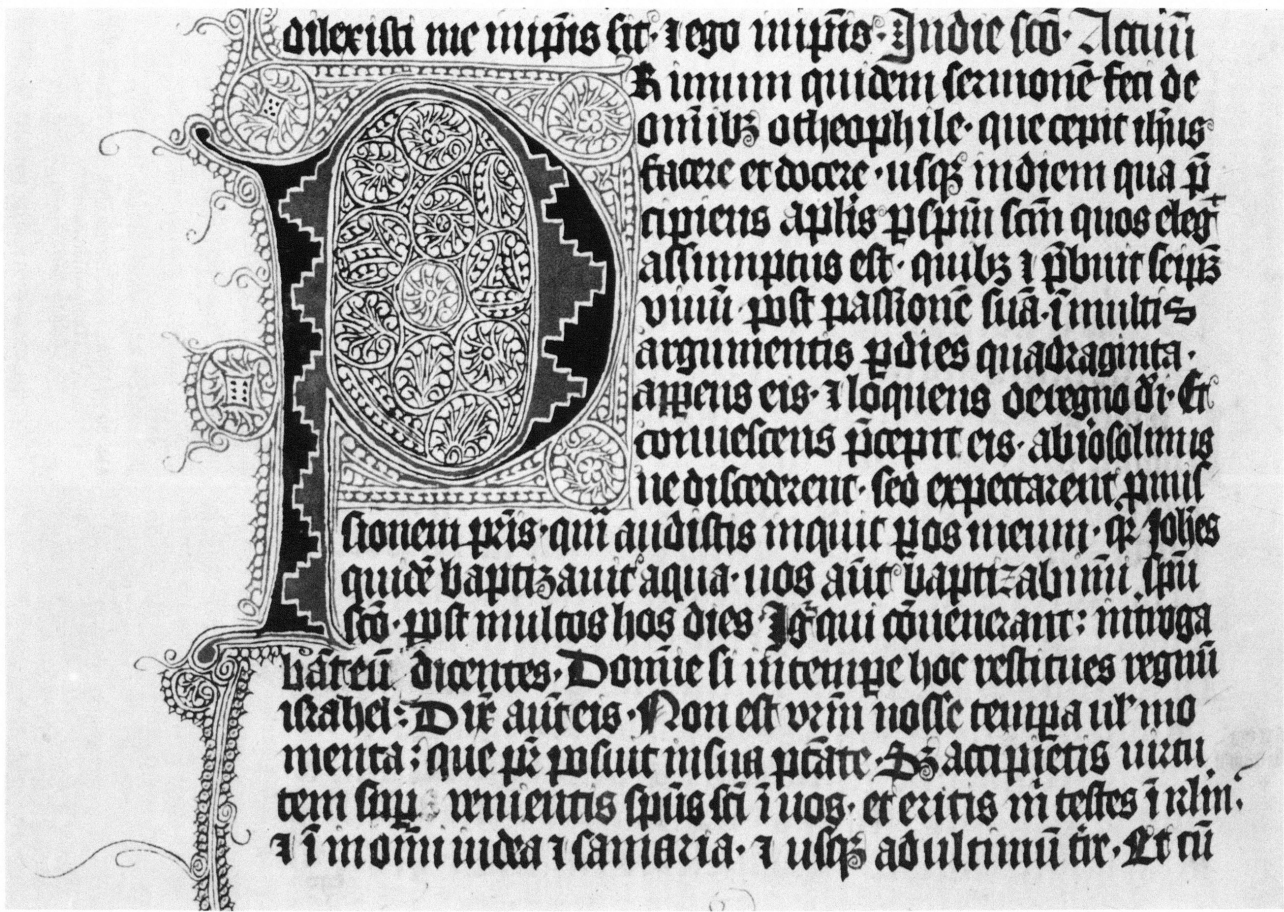 dilexisti me in ip̄is sit · ⁊ ego in ip̄is · In die sc̄o · Actuū
PRimum quidem sermonē feci de
om̄ibꝫ o theophile · que cepit ih̄us
facere et docere · usqꝫ in diem qua p̄
cipiens ap̄lis ꝑ sp̄m sc̄m quos elegͭ
assumptus est · quibꝫ ⁊ p̄buit seip̄ꝫ
vivū · post passionē suā · ī multis
argumentis ꝑ dies quadraginta ·
apꝑens eis · ⁊ loquens de regno dī · Et
convescens p̄cepit eis · ab iosolimis
ne discederent · sed expectarent ꝓmis
sionem pr̄is · quā audistis inquit ꝑ os meum · qꝛ Joh̄es
quidē baptizavit aqua · vos aūt baptizabimī sp̄u
sc̄o · post multos hos dies Iḡ qui cōvenerant : intͥroga
bāt eū dicentes · Domīe si in tempe hoc restitues regnū
israhel : Dix̄ aūt eis · Non est vr̄m nosse tempa ul' mo
menta : que pr̄ posuit in sua ptāte · Sꝫ accipiētis virtu
tem supꝑ venientis sp̄us sc̄i ī vos · et eritis m̄ testes ī irl̄m ·
⁊ ī om̄i iudea ⁊ samaria · ⁊ usqꝫ ad ultimū tr̄e · Et cū